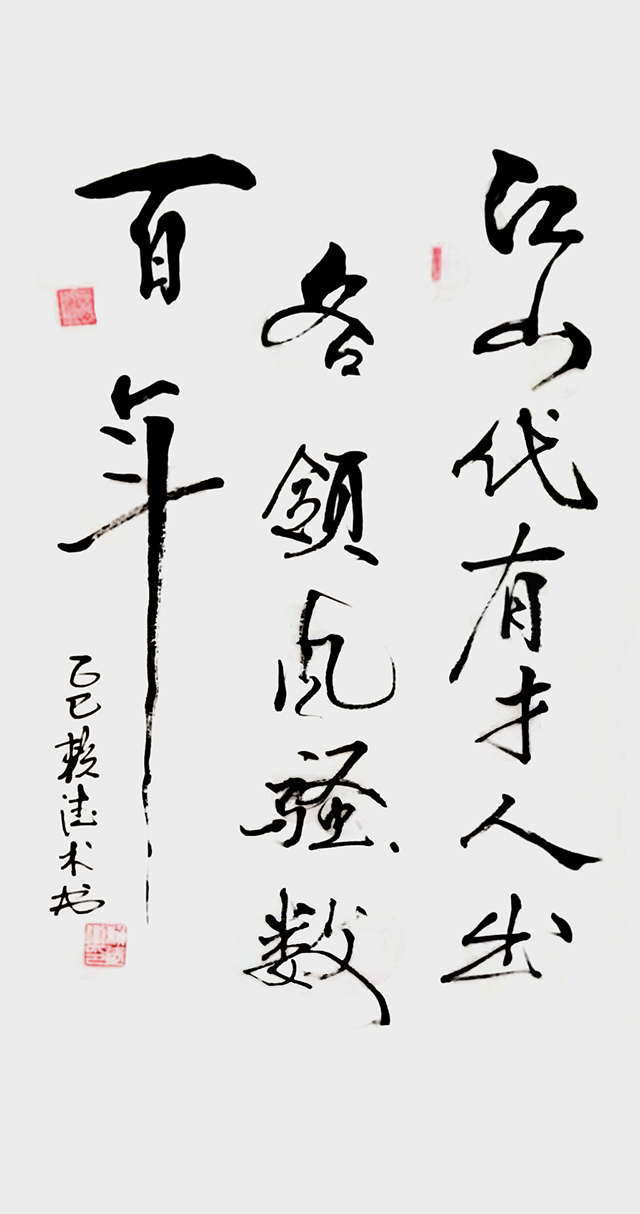 江山代有才人出
各领风骚数
百年
乙巳赖法术书